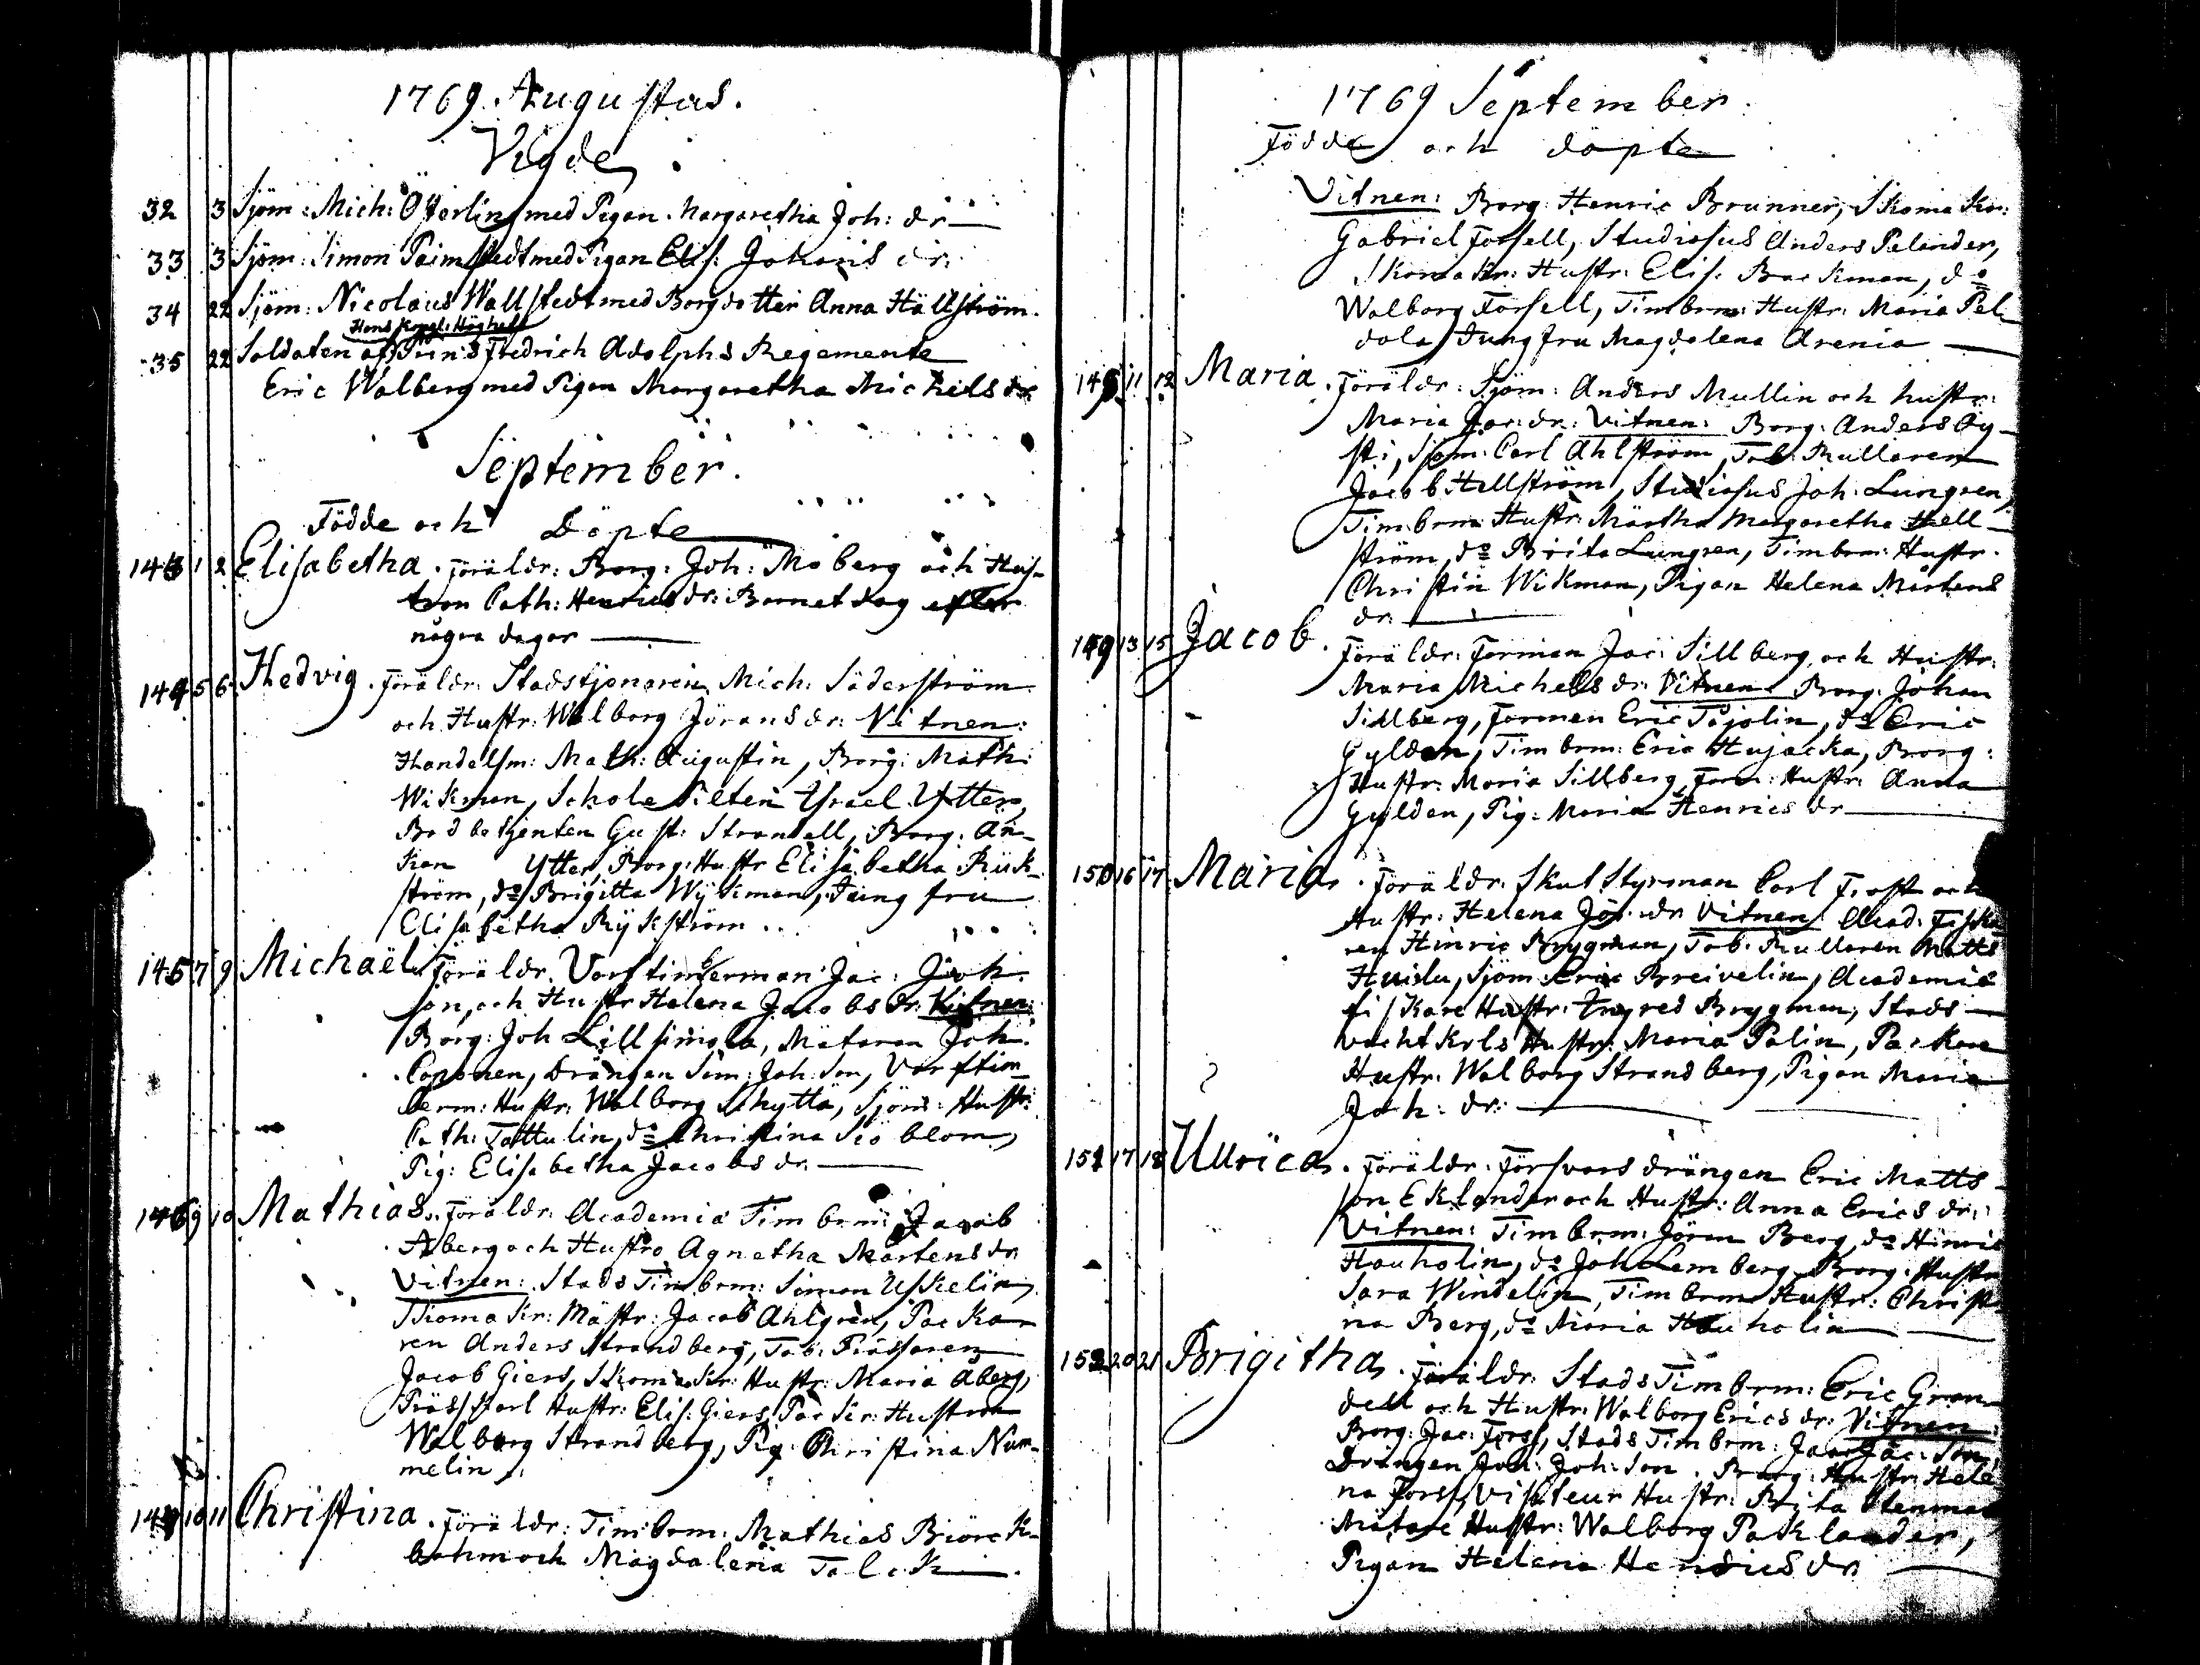 1769. Augustus.
Vigde
32 3 Sjöm: Mich: Österlin med Pigan Margaretha Joh: dr
33 3 Sjöm: Simon Palmstedt med Pigan Elis: Johans dr:
34 22 Sjöm: Nicolaus Wallstedt med Borg dotter Anna Hällström.
Hans Kongl: Höghets
35 22 Soldaten af Prins Fredrich Adolphs Regemente
Eric Walberg med Pigan Margaretha Michels dr
September.
Födde och Döpte
143 1 2 Elisabetha. Föräldr: Borg: Joh: Moberg och Hus-
tron Cath: Henrics dr: Barnet dog efter
några dagar
144 5 6 Hedvig. Föräldr: Stadstjenaren Mich: Söderström
och Hustr: Walborg Jörans dr: Vitnen:
Handelsm: Math: Augustin, Borg: Math:
Wikman, Schole Pilten Ysrael Ytter,
Bod betjenten Gust: Strandell, Borg: Än-
kan Ytter, Borg: Hustr Elisabetha Rük-
ström, do Brigitta Wijkman, Jungfru
Elisabetha Rijkström
145 7 9 Michaël. Föräldr. Varftimberman Jac: Joh:
son, och Hustr Helena Jacobs dr: Vitnen:
Borg: Joh Lillsimola, Mätaren Joh:
Caponen, Drängen Sim: Joh: Son, Varftim-
berm: Hustr: Walborg Schyttä, Sjöm: Hustr:
Cath: Tattulin, do Christina Siöblom,
Pig: Elisabetha Jacobs dr.
146 9 10 Mathias. Föräldr: Academiæ Timbrm: Jacob
Åberg och Hustro Agnetha Mårtens dr
Vitnen: Stads Timbrm: Simon Uskelin,
Skomakr: Mästr: Jacob Ahlgren, Packa-
ren Anders Strandberg, Tob: Prässaren
Jacob Giers, Skomakr: Hustr: Maria Åberg,
Präss Karl Hustr: Elis: Giers, Packr: Hustrun
Walborg Strandberg, Pig: Christina Num-
melin
147 10 11 Christina. Föräldr: Timbrm: Mathias Biörck-
bohm och Magdalena Falck
1769 September.
Födde och döpte
Vitnen: Borg: Henric Brunner, Skomakr:
Gabriel Forsell, Studiosus Anders Pelander,
Skomakr: Hustr: Elis: Backman, do
Walborg Forsell, Timbrm: Hustr: Maria Pel-
dola, Jungfru Magdalena Arenia
148 11 12 Maria. Föräldr: Sjöm: Anders Mullin och hustr:
Maria Jac: dr: Vitnen: Borg: Anders Öy-
sti, Sjöm: Carl Ahlström, Tob: Rullaren
Jacob Hellström, Studiosus Joh: Lungren,
Timbrm: Hustr: Märtha Margaretha Hell-
ström, do Brita Lungren, Timbrm: Hustr.
Christin Wikman, Pigan Helena Mårtens
dr:
149 13 15 Jacob. Föräldr: Forman Jac: Sillberg, och Hustr:
Maria Michels dr: Vitnen: Borg: Johan
Sillberg, Forman Eric Töjolin, do Eric
Gylden, Timbrm: Eric Hujacka, Borg:
Hustr: Maria Sillberg, Form: Hustr: Anna
Gylden, Pig: Maria Henrics dr
150 16 17 Maria. Föräldr: Skut Styrman Carl Frost och
Hustr: Helena Jör: dr Vitnen: Acad: Fiska
ren Hinric Brygman, Tob. Rullaren Matts
Huidu, Sjöm: Eric Breivelin, Academiæ
fiskare Hustr: Ingred Brygman, Stads
vacht Krls Hustr: Maria Palin, Packare
Hustr: Walborg Strandberg, Pigan Maria
Joh: dr:
151 17 18 Ullrica. Föräldr. Försvars drängen Eric Matts-
son Eklandar och Hustr: Anna Erics dr:
Vitnen: Timbrm: Jöran Berg, do Hinric
Hauholin, do Joh Lemberg, Borg: Hustr
Sara Windelin, Timbrm Hustr: Christi
na Berg, do Maria Hauholin
152 20 21 Brigitha. Föräldr: Stads Timbrm: Eric Gran-
dell och Hustr: Walborg Erics dr: Vitnen:
Borg: Jac: Forss, Stads Timbrm: Jac: Jac: Son,
Drängen Joh: Joh: Son. Borg: Hustr: Hele
na Forss, Visiteur Hustr: Brita Stenman
Mätare Hustr: Walborg Packlander,
Pigan Helena Henrics dr